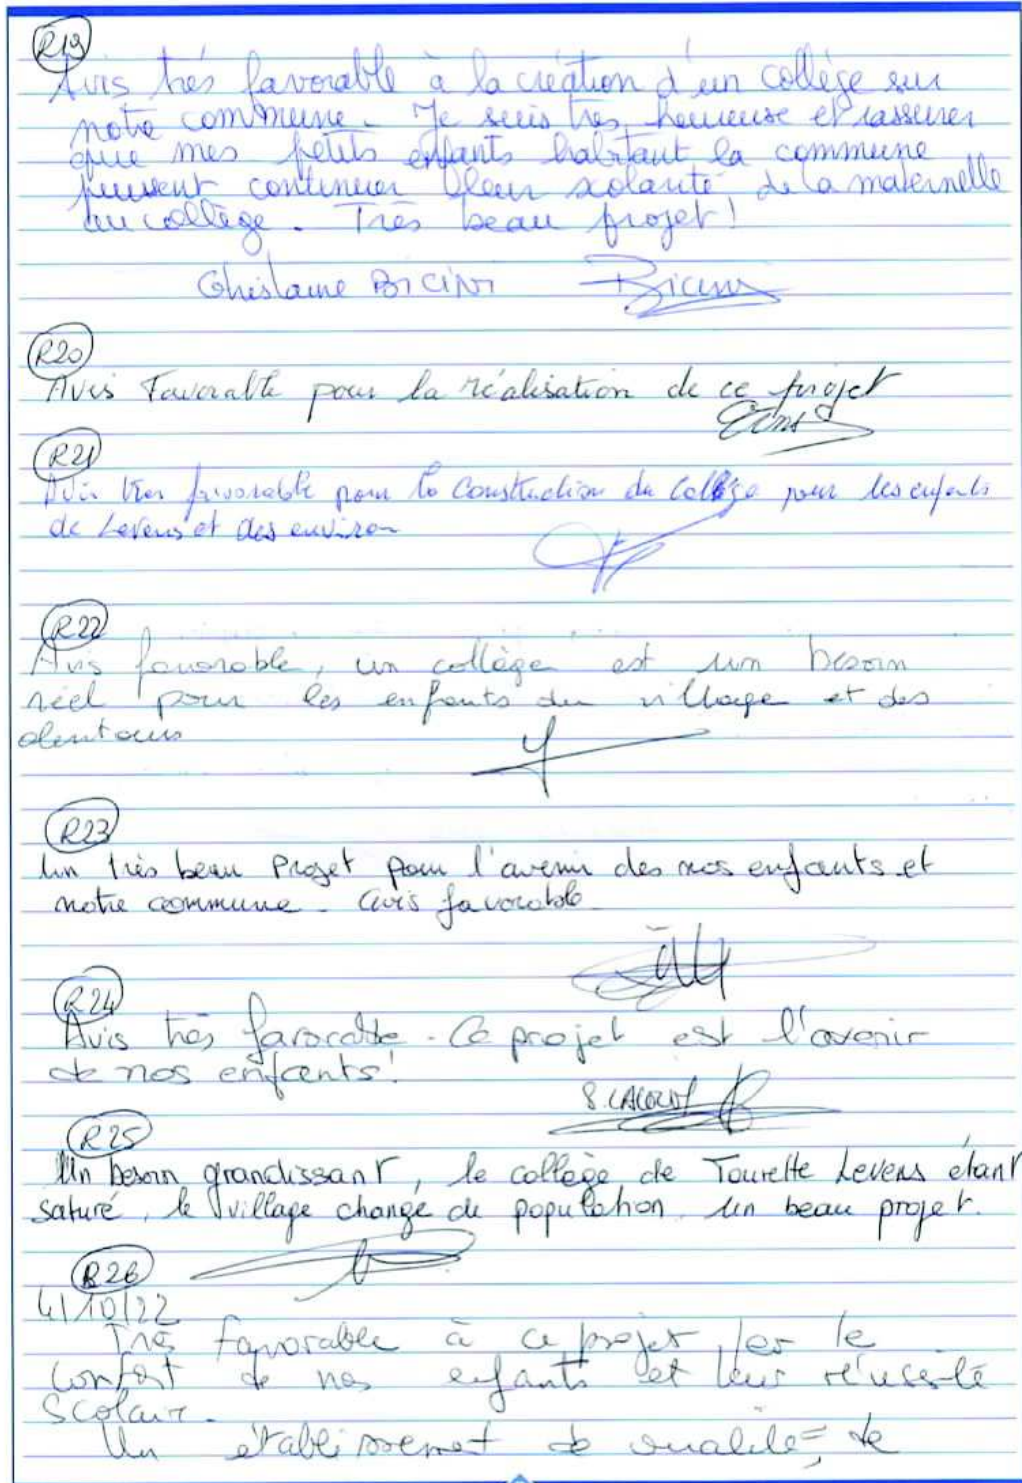 R19
Avis très favorable à la création d'un collège sur
notre commune. Je suis très heureuse et rassurer
que mes petits enfants habitant la commune
puissent continuer leur scolarité de la maternelle
au collège. Très beau projet!
Ghislaine BICINI
R20
Avis Favorable pour la réalisation de ce projet
R21
Avis très favorable pour la construction du Collège pour les enfants
de Levens et des environ
R22
Avis favorable, un collège est un besoin
réel pour les enfants du village et des
alentours
R23
Un très beau Projet pour l'avenir des nos enfants et
notre commune. avis favorable
R24
Avis très favorable. Ce projet est l'avenir
de nos enfants!
R25
Un besoin grandissant, le collège de Tourette Levens étant
saturé, le village change de population. un beau projet.
R26
4/10/22
Très favorable à ce projet le
confort de nos enfants et leur réussité
Scolair.
Un établissement de qualité de